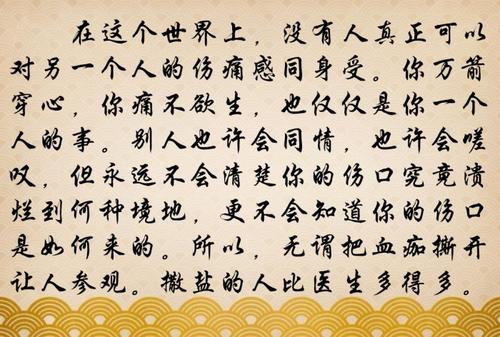 在这个世界上，没有人真正可以
对另一个人的伤痛感同身受。你万箭
穿心，你痛不欲生，也仅仅是你一个
人的事。别人也许会同情，也许会嗟
叹，但永远不会清楚你的伤口究竟溃
烂到何种境地，更不会知道你的伤口
是如何来的。所以，无谓把血痂撕开
让人参观。撒盐的人比医生多得多。